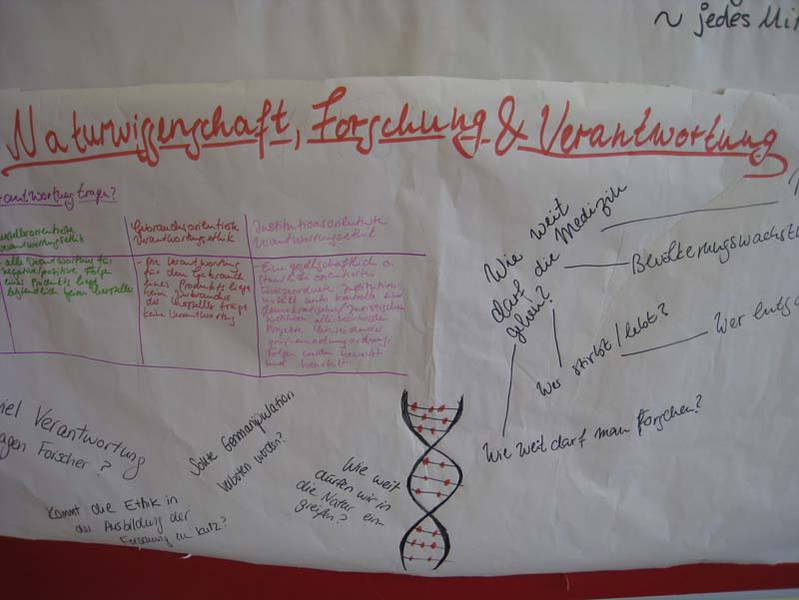 ~ jedes Mi
Naturwissenschaft, Forschung & Verantwortung
antwortung tragen?
Verantwortungsethik
alle Verantwortung für
negative/positive Folgen
eines Produkts liegt
letztendlich beim Hersteller
Gebrauchsorientierte
Verantwortungsethik
- die Verantwortung
für den Gebrauch
eines Produkts liegt
beim Verbraucher
der Hersteller trägt
keine Verantwortung
Institutionsorientierte
Verantwortungsethik
Eine gesellschaftlich o.
staatlich orientierte
Institution
Kontrolle über
demokratischen/juristischen
Projekte
Folgen werden
und
Wie weit
darf die Medizin
gehen?
Bevölkerungswachst
Wer stirbt/lebt?
Wer entsc
Wie weit darf man forschen?
iel Verantwortung
agen Forscher?
Sollte Genmanipulation
verboten werden?
Kommt die Ethik in
der Ausbildung der
zu kurz?
Wie weit
dürfen wir in
die Natur ein-
greifen?